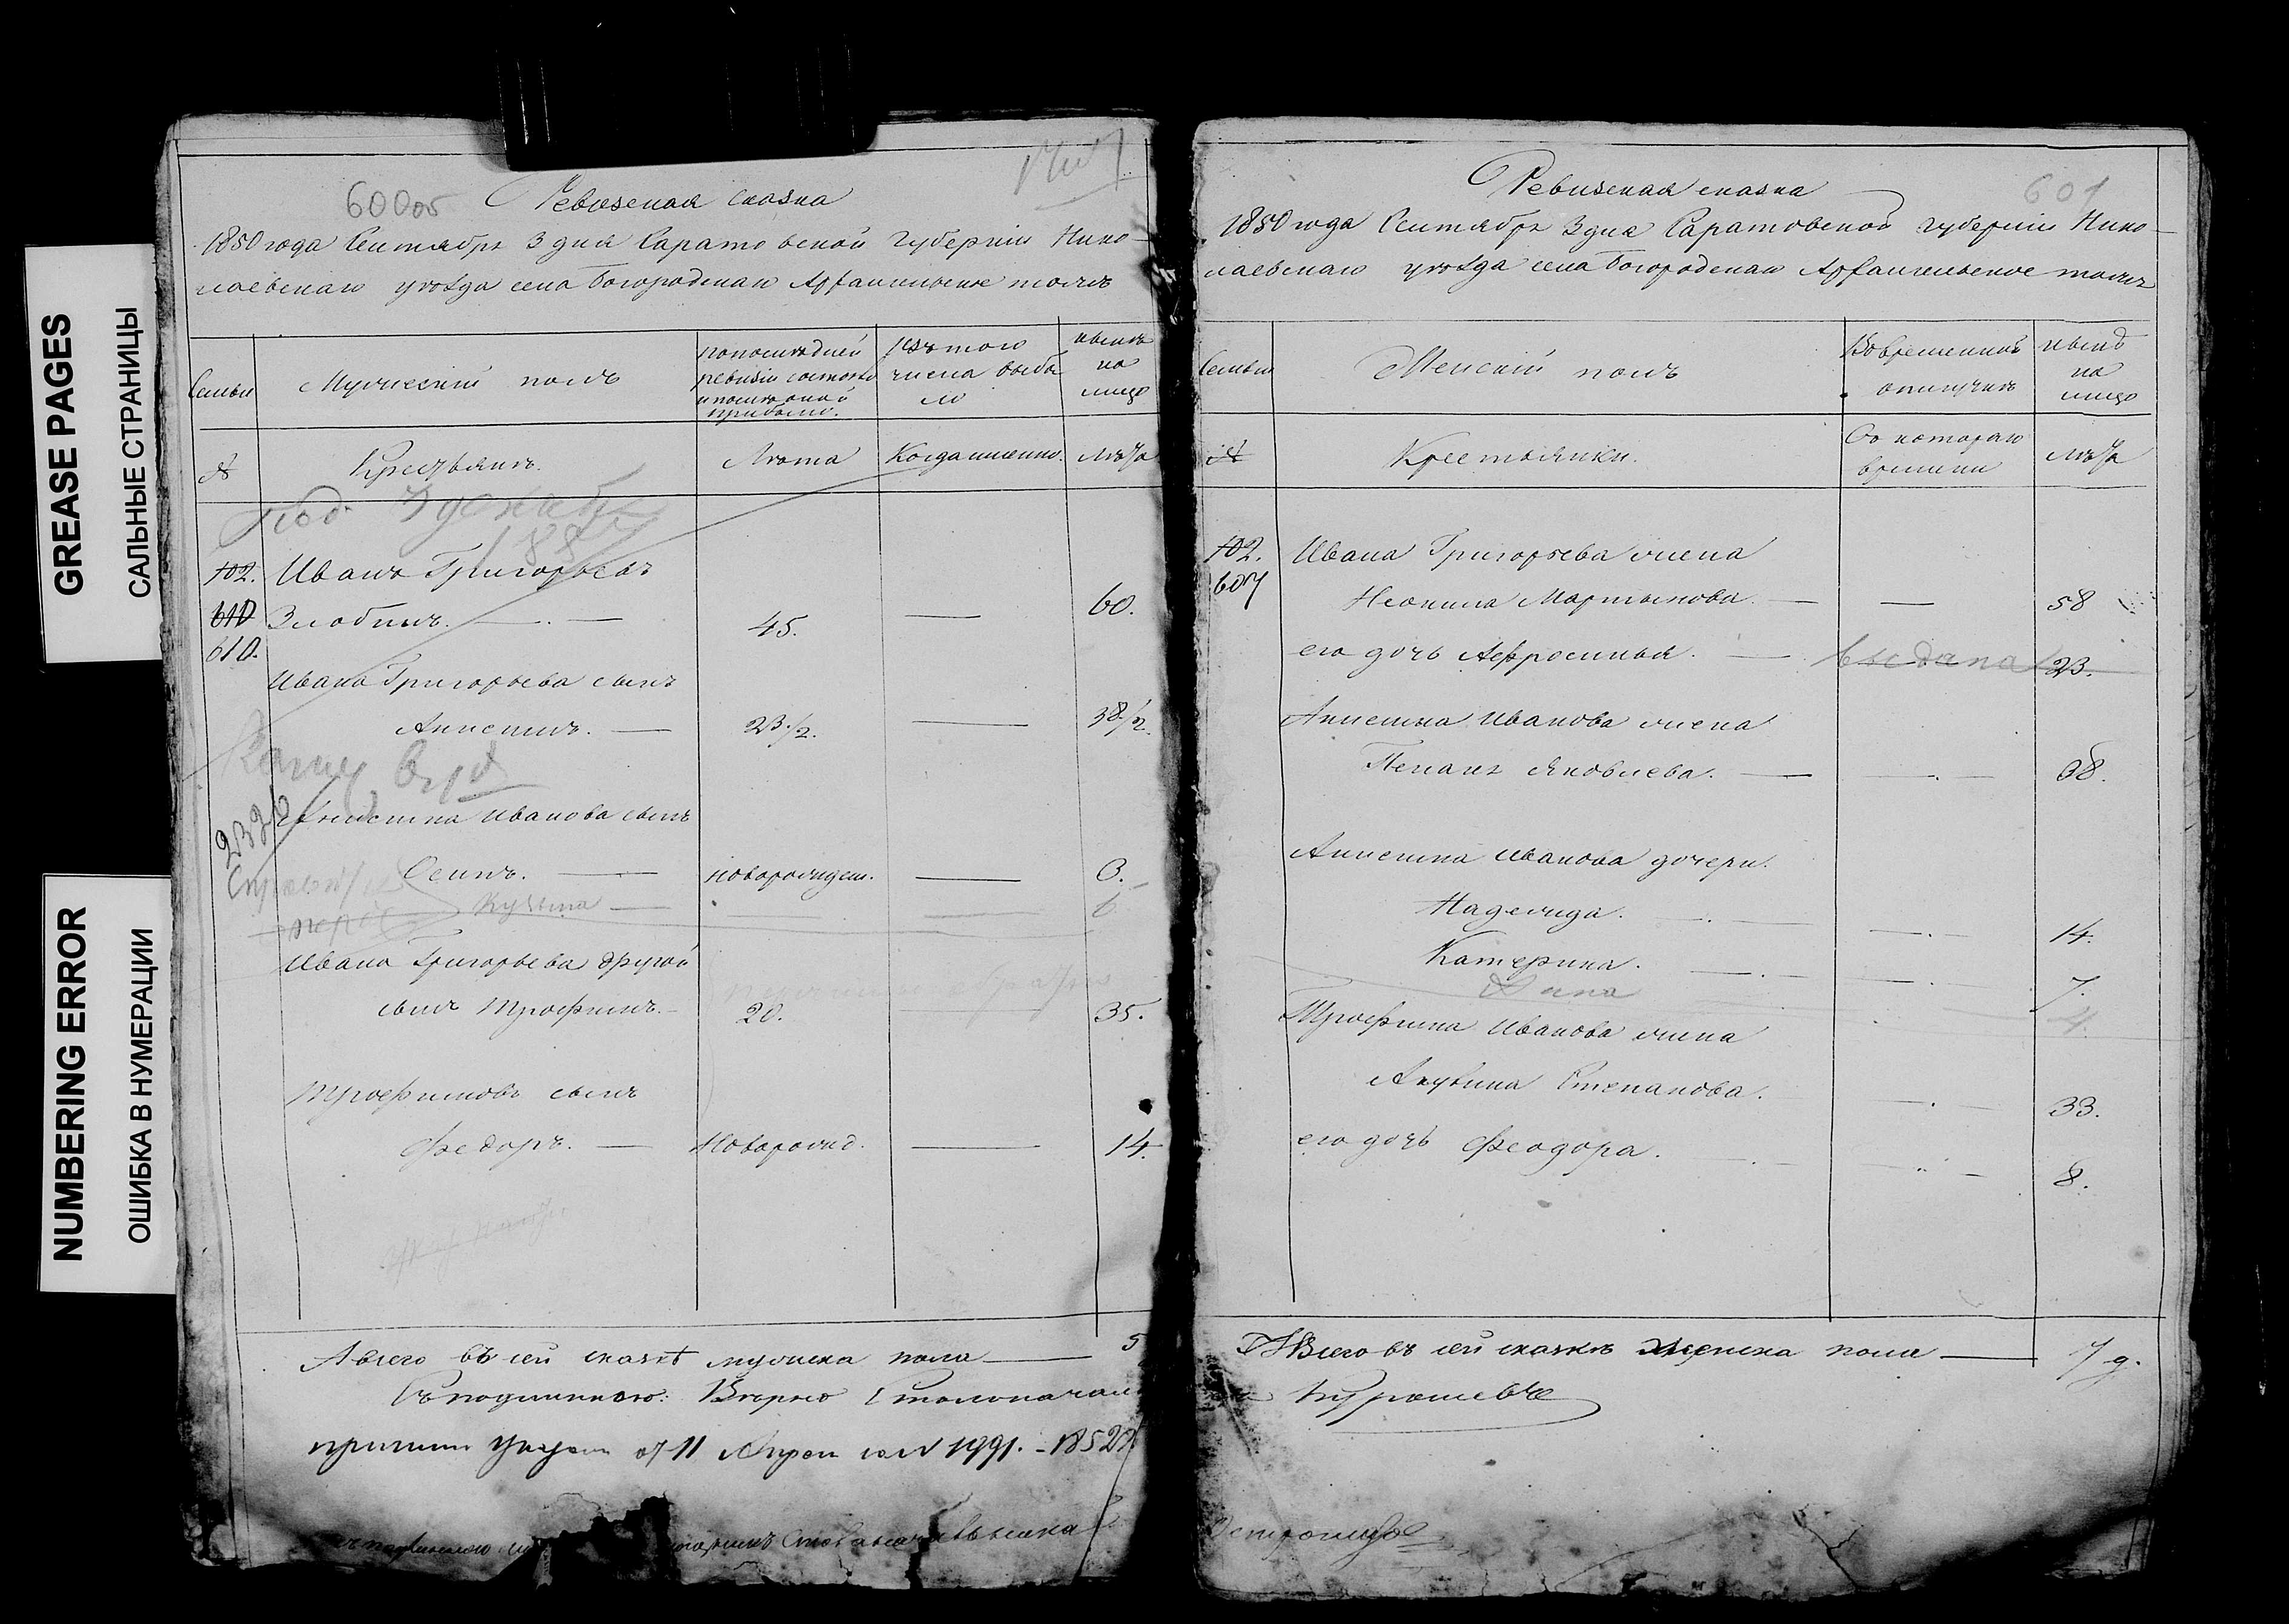 GREASE PAGES
САЛЬНЫЕ СТРАНИЦЫ
NUMBERING ERROR
ОШИБКА В НУМЕРАЦИИ
600об
Ревизская сказка
1850 года Сентября 3 дня Саратовской Губернии Нико-
лаевскаго уѣзда села Богородскаго Архангельское тожъ
Семьи
Мужеский полъ
По последней ревизіи состояло и после оной прибыло.
Изъ того числа выбыло
Ныне на лицо
№
Крестьянъ.
Лета
Когда именно.
Лета
102. Иванъ Григорьевъ
610 Злобинъ. — 45. — 60.
610.
Ивана Григорьева сынъ
Анисимъ. — 23 1/2. — 38 1/2.
Анисима Иванова сынъ
Осипъ. — новорожден. — 3.
Кузьма — 6
Ивана Григорьева другой
сынъ Трофимъ. — 20. 35.
Трофимовъ сынъ
Федоръ. — Новорожд. — 14.
Всего въ сей сказкѣ мужеска пола — 5
Съ подлинною: Верно Столоначаль
11 1991. - 1852
601
Ревизская сказка
1850 года Сентября 3 дня Саратовской губерніи Нико-
лаевскаго уѣзда села Богородскаго Архангельское тожъ
Семьи
Женскій полъ
Во временной отлучкѣ
Ныне на лицо
№
Крестьянки.
Съ котораго времени
Лета
102. Ивана Григорьева жена
607 Неонила Мартынова. — — 58
его дочь Аефросинья. — выдана 23.
Анисима Иванова жена
Пелагея Яковлева. — 38.
Анисима Иванова дочери.
Надежда. 14.
Катерина. 7.
Анна 4.
Трофима Иванова жена
Акулина Степанова. 33.
его дочь Феодора. 8.
Всего въ сей сказкѣ женска пола — 7 д.